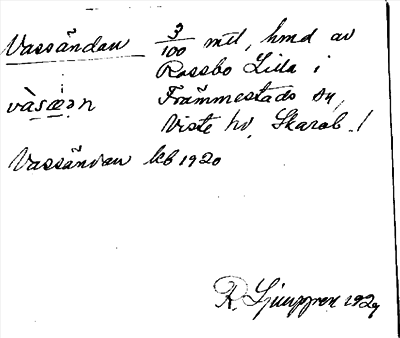 Vassändan 3/100 mtl, hmd av
Rossbo Lilla i
vàsæ̀ən Främmestads sn,
Viste hd, Skarab. l
Vassändan kb 1920
R. Ljunggren 1929